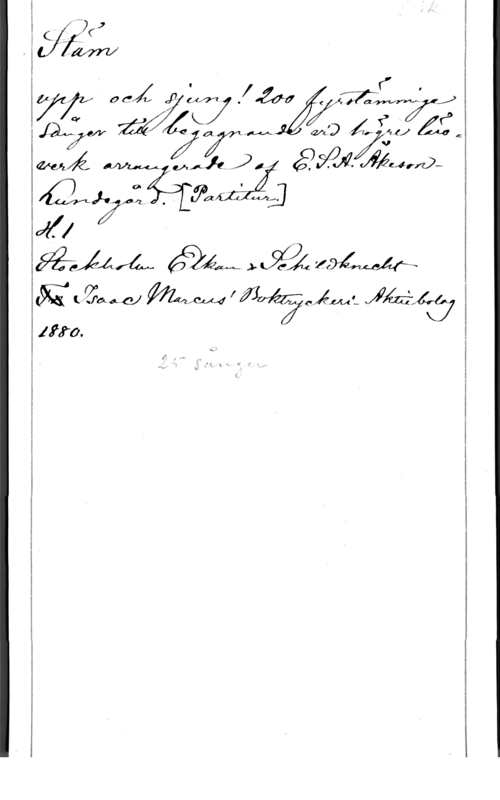 Stäm
upp och sjung! 200 fyrstämmiga
sånger till begagnande vid högre läro-
verk arrangerade af E. S. A. Åkeson-
Lundegård. [Partitur.]
H. 1
Stockholm Elkan & Schildknecht
Isaac Marcus' Boktryckeri-Aktiebolag
1880.
25 sånger